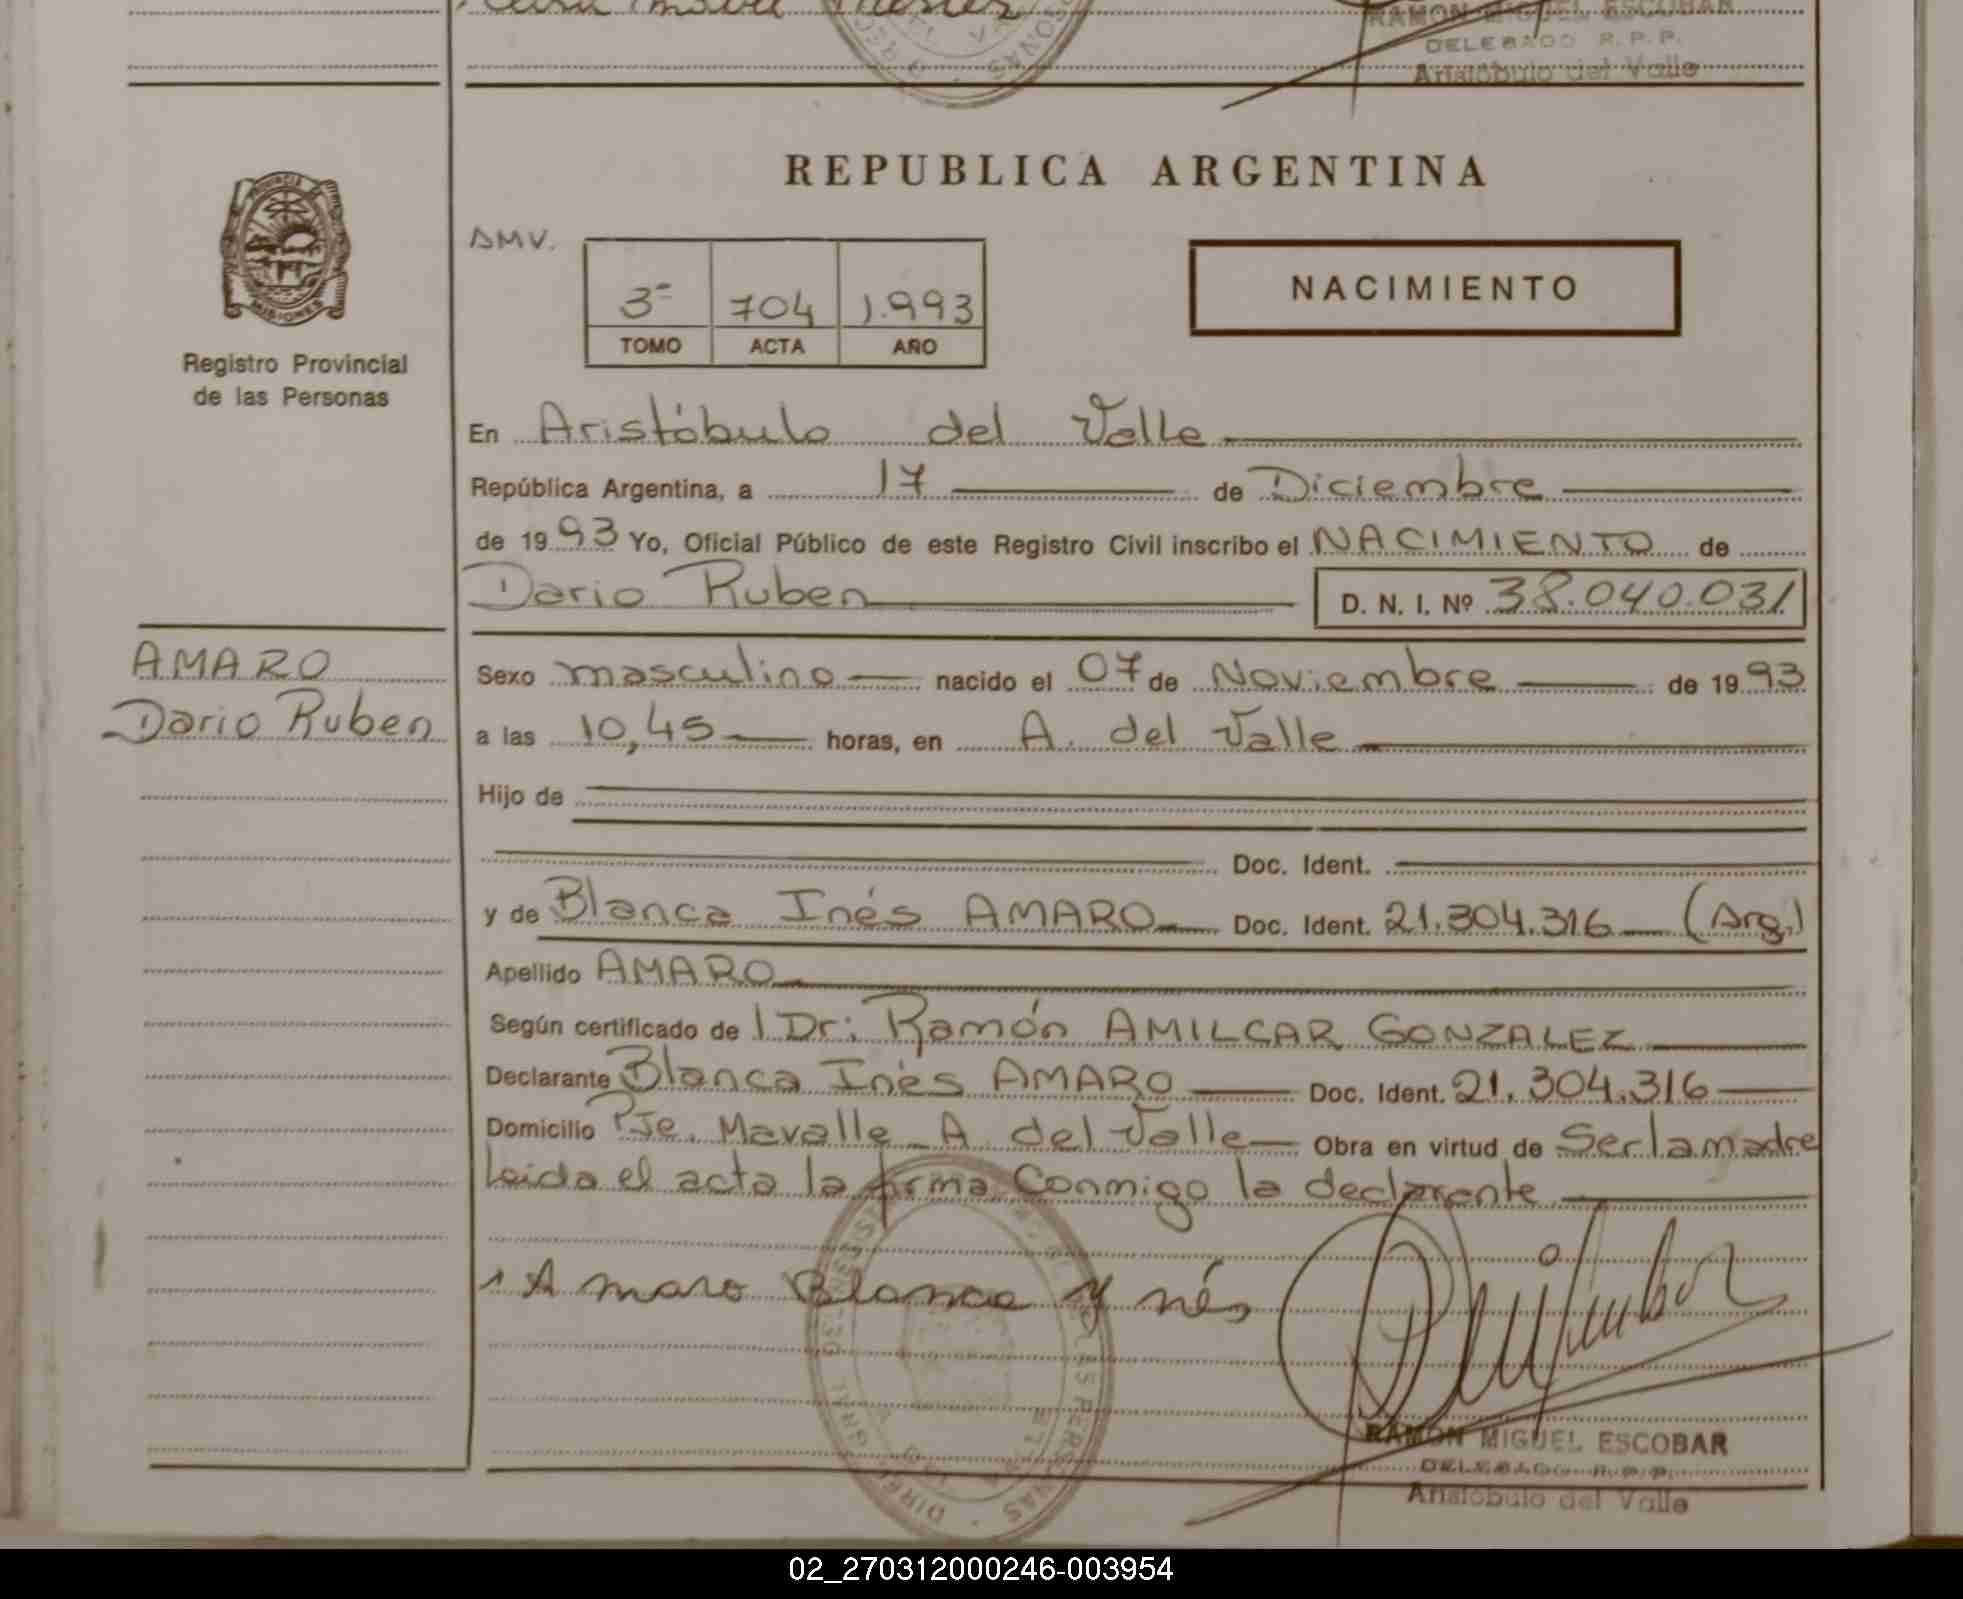 RAMON MIGUEL ESCOBAR
DELEGADO R.P.P.
Aristóbulo del Valle
REPUBLICA ARGENTINA
PROVINCIA
MISIONES
Registro Provincial
de las Personas
DMV.
3º 704 1.993
TOMO ACTA AÑO
NACIMIENTO
En Aristóbulo del Valle
República Argentina, a 17 de Diciembre
de 1993 Yo, Oficial Público de este Registro Civil inscribo el NACIMIENTO de
Dario Ruben D. N. I. Nº 38.040.031
AMARO
Dario Ruben
Sexo masculino nacido el 07 de Noviembre de 1993
a las 10,45 horas, en A. del Valle
Hijo de
Doc. Ident.
y de Blanca Inés AMARO Doc. Ident. 21.304.316 (Arg.)
Apellido AMARO
Según certificado de l Dr: Ramón AMILCAR GONZALEZ
Declarante Blanca Inés AMARO Doc. Ident. 21.304.316
Domicilio Pje. Mavalle A. del Valle Obra en virtud de Ser la madre
Leida el acta la firma Conmigo la declarante
Amaro Blanca Ynés
RAMON MIGUEL ESCOBAR
DELEGADO R.P.P.
Aristóbulo del Valle
02_270312000246-003954